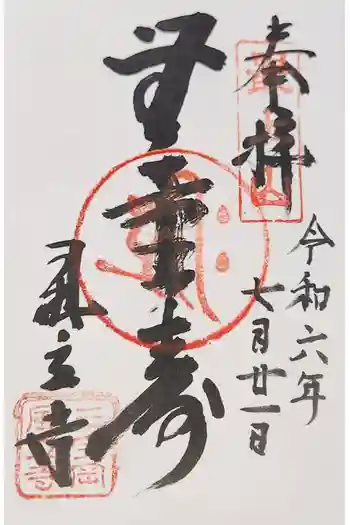 奉拝
令和六年
七月廿一日
無量寿
立寺